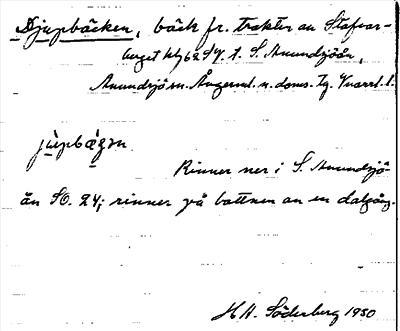 Djupbäcken, bäck fr. trakten av Stafvar-
berget kbg 62 SV. t. S. Anundsjöån,
Anundsjö sn. Ångerml. n. doms. Tg. Vnorrl. l.
jùpbæ̀gɜn
Rinner ner i S. Anundsjö-
ån SO. 24; rinner på bottnen av en dalgång.
H. H. Söderberg 1930